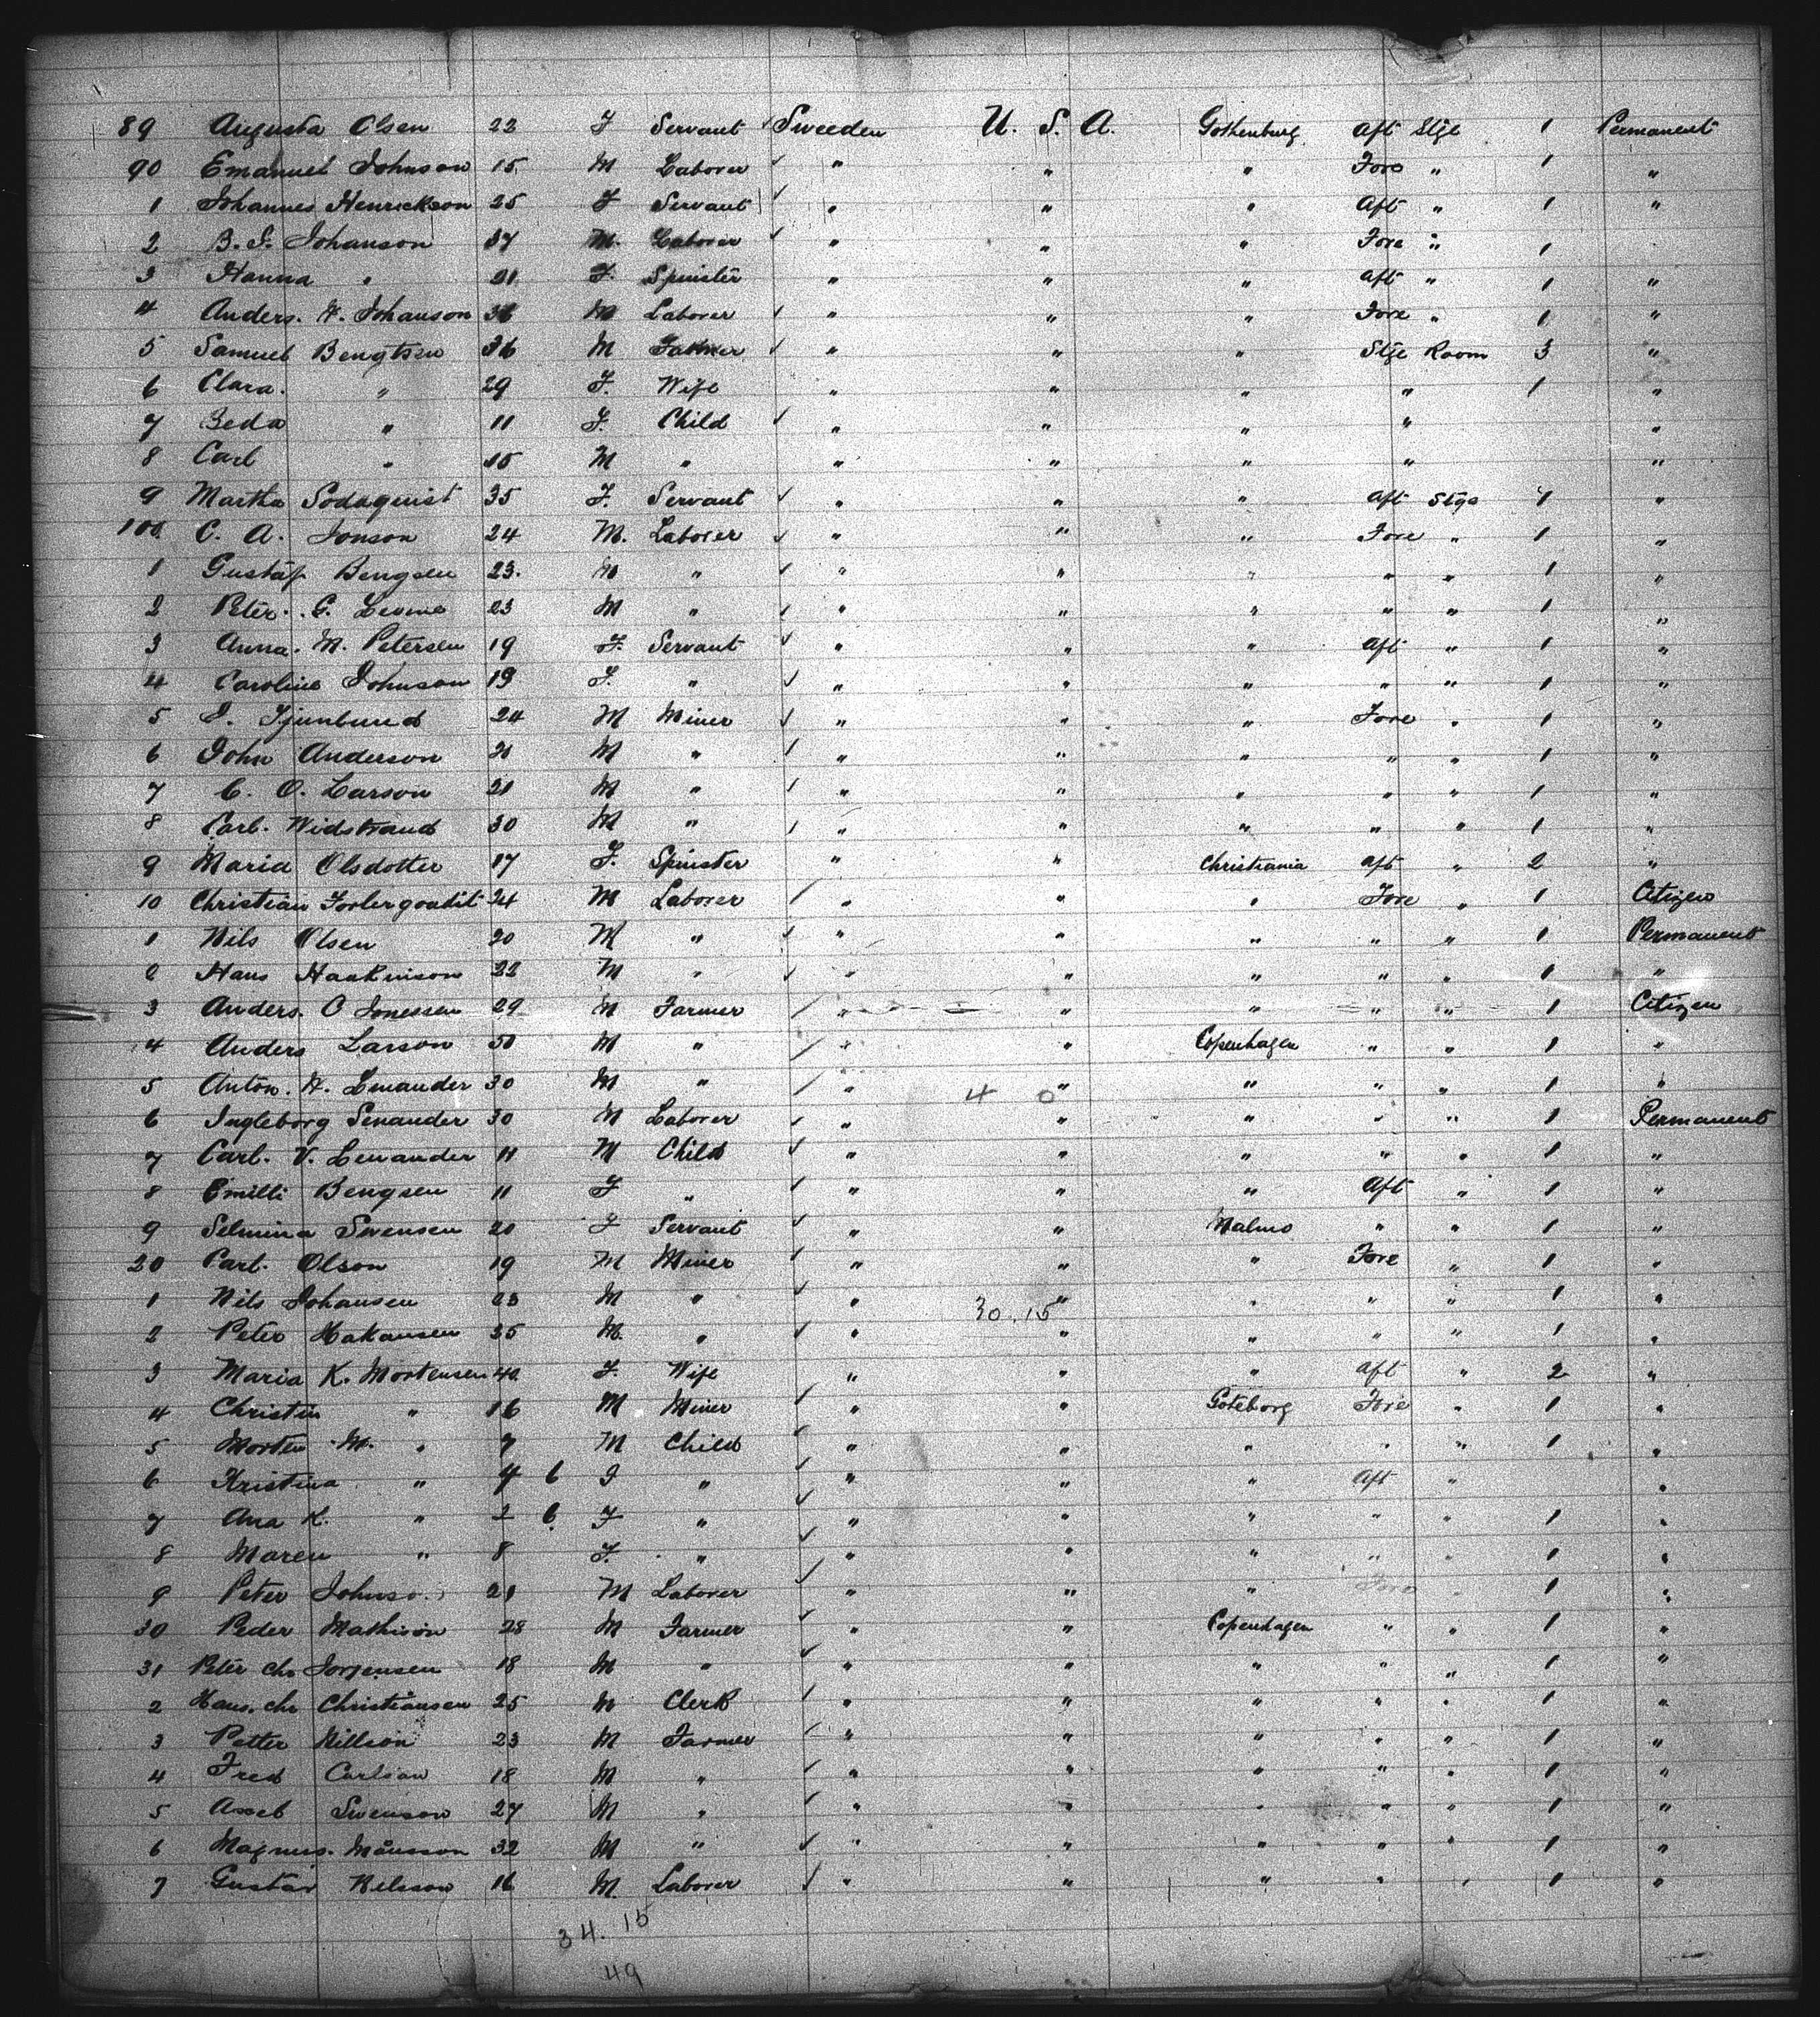 89 Augusta Olsen 22 F Servant Sweeden U. S. A. Gothenburg Aft Stge 1 Permanent
90 Emanuel Johnson 15 M Laborer " " " Fore " 1 "
1 Johannes Henrickson 25 F Servant " " " Aft " 1 "
2 B. J. Johanson 37 M. Laborer " " " Fore " 1
3 Hanna " 21 F. Spinster " " " Aft " 1 "
4 Anders. H. Johanson M Laborer " " " Fore " 1 "
5 Samuel Bengtsen 36 M Farmer " " " Stge Room 3 "
6 Clara. " 29 F. Wife " " " " 1 "
7 Beda " 11 F. Child " " " " "
8 Carl " M " " " " " "
9 Martha Sodaquist 35 F. Servant " " " Aft Stge 1 "
100 C. A. Jonson 24 M. Laborer " " " Fore " 1 "
1 Gustaf Bengsen 23. M " " " " " " 1 "
2 Peter. G. Levine 23 M " " " " " " 1 "
3 Anna. M. Petersen 19 F. Servant " " " Aft " 1 "
4 Caroline Johnson 19 F. " " " " " " 1 "
5 24 M Miner " " " Fore " 1 "
6 John Anderson 21 M " " " " " " 1 "
7 C. O. Larson 21 M " " " " " " 1 "
8 Carl. Widstrand 30 M " " " " " " 1 "
9 Maria Olsdotter 17 F. Spinster " " Christiania Aft " 2 "
10 Christian 24 M Laborer " " " Fore " 1 Citizen
1 Nils Olsen 20 M " " " " " " 1 Permanent
2 Hans Haakinson 22 M " " " " " " 1 "
3 Anders. O Jonessen 29 M Farmer " " " " " 1 Citizen
4 Anders Larson 50 M " " " Copenhagen " " 1 "
5 Anton. H. Lenander 30 M " " 4 0 " " " " 1 "
6 Ingleborg Lenander 30 M Laborer " " " " " 1 Permanent
7 Carl. V. Lenander 11 M Child " " " " " 1 "
8 Emilli Bengsen 11 F " " " " Aft " 1 "
9 Selmina Swensen 20 F Servant " " Malmo " " 1 "
20 Carl. Olson 19 M Miner " " " Fore " 1 "
1 Nils Johansen 23 M " " 30.15 " " " " 1 "
2 Peter Hakansen 25 M. " " " " " " 1 "
3 Maria K. Mortensen 40 F. Wife " " " Aft " 2 "
4 Christin " 16 M Miner " " Goteborg Fore " 1 "
5 Morten M. " 7 M Child " " " " " 1 "
6 Kristina " 4 6 F " " " " Aft " "
7 Ana K. " 2 6 F " " " " " " 1 "
8 Maren " 8 F. " " " " " " 1 "
9 Peter Johnso. 21 M Laborer " " " Fore " 1 "
30 Peder Mathison 28 M Farmer " " Copenhagen " " 1 "
31 Peter Chr Jorgensen 18 M " " " " " " 1 "
2 Hans. Chr Christiansen 25 M Clerk " " " " " 1 "
3 Petter Nillson 23 M Farmer " " " " " 1 "
4 Fred Carlson 18 M " " " " " " 1 "
5 Axel Swenson 27 M " " " " " " 1 "
6 Magnus. Månsson 32 M " " " " " " 1 "
7 Gustav Nelsson 16 M. Laborer " " " " " 1 "
34. 15
49